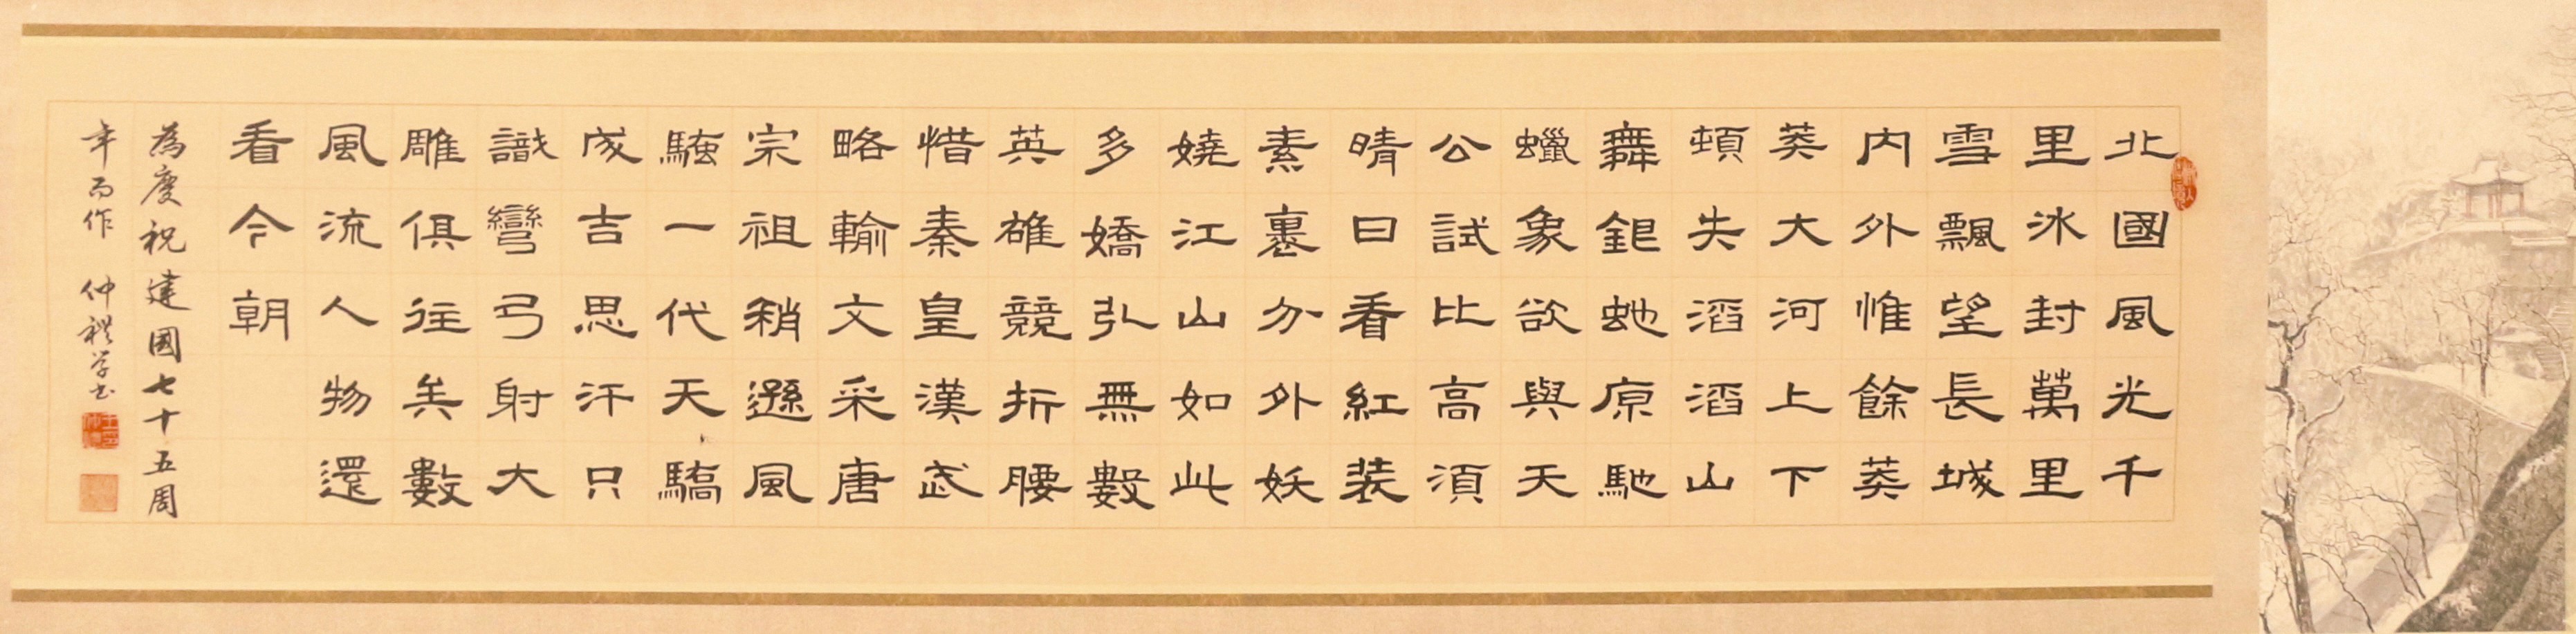 北國風光千
里冰封萬里
雪飄望長城
内外惟餘莽
莽大河上下
頓失滔滔山
舞銀蛇原馳
蠟象欲與天
公試比高須
晴日看紅裝
素裹分外妖
嬈江山如此
多嬌引無數
英雄競折腰
惜秦皇漢武
略輸文采唐
宗祖稍遜風
騷一代天驕
成吉思汗只
識彎弓射大
雕俱往矣數
風流人物還
看今朝
為慶祝建國七十五周
年而作 仲禮学书